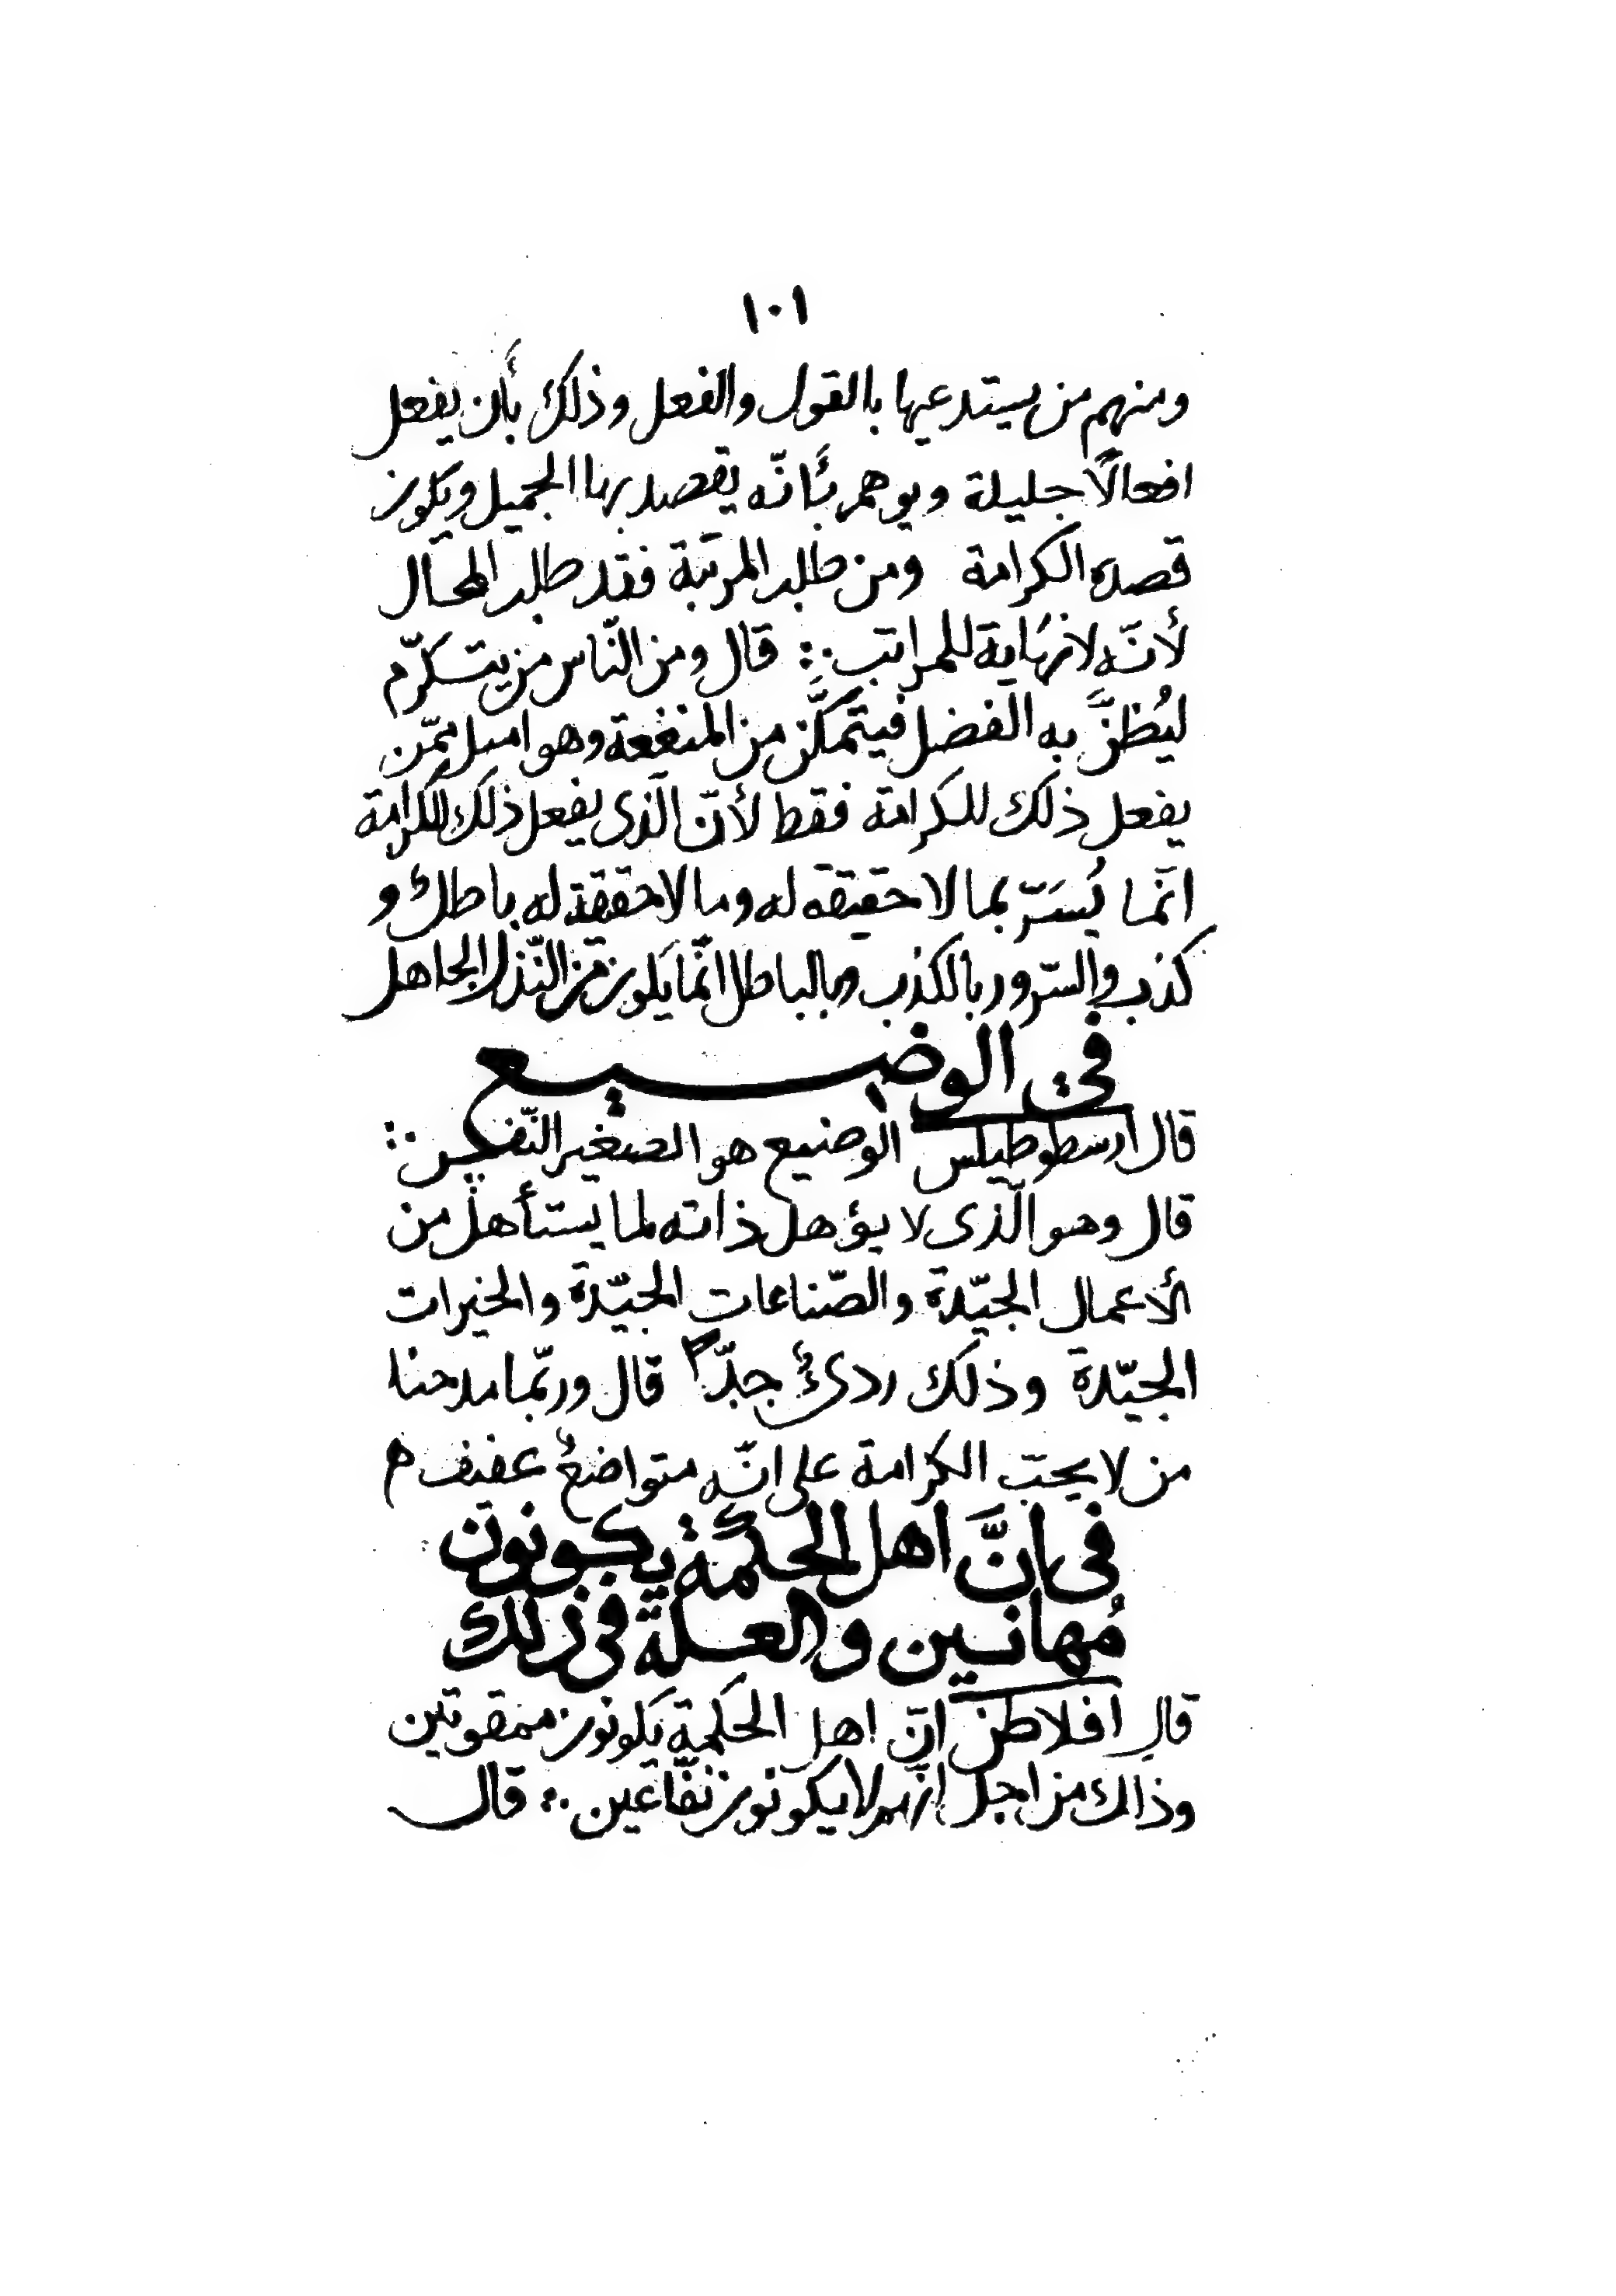 ١٠١
ومنهم من يستدعيها بالقول والفعل وذلك بأن يفعل
افعالًا جليلة ويوهم بأنّه يقصد بها الجميل ويكون
قصده الكرامة ومن طلب المرتبة فقد طلب المحال
لأنّه لا نهاية للمراتب ∴ قال ومن النّاس من يتكرّم
ليُظنَّ به الفضل فيتمكَّن من المنفعة وهو امثل ممّن
يفعل ذلك للكرامة فقط لأنّ الّذى يفعل ذلك للكرامة
انّما يُسَرّ بما لا حقيقة له وما لا حقيقة له باطل و
كذب والسّرور بالكذب وبالباطل انّما يكون من النّذل الجاهل
فى الوضيع
قال ارسطوطيلس الوضيع هو الصغير النّفس ∴
قال وهو الّذى لا يؤهل ذاته لما يستأهل من
الأعمال الجيّدة والصّناعات الجيّدة والخيرات
الجيّدة وذلك ردىءٌ جدّاً قال وربّما مدحنا
من لا يحبّ الكرامة على انّه متواضعٌ عفيف م
فى انَّ اهل الحكمة يكونون
مُهانين والعلة فى ذلك
قال افلاطن انّ اهل الحكمة يكونون ممقوتين
وذلك من اجل انّهم لا يكونون نفّاعين ∴ قال